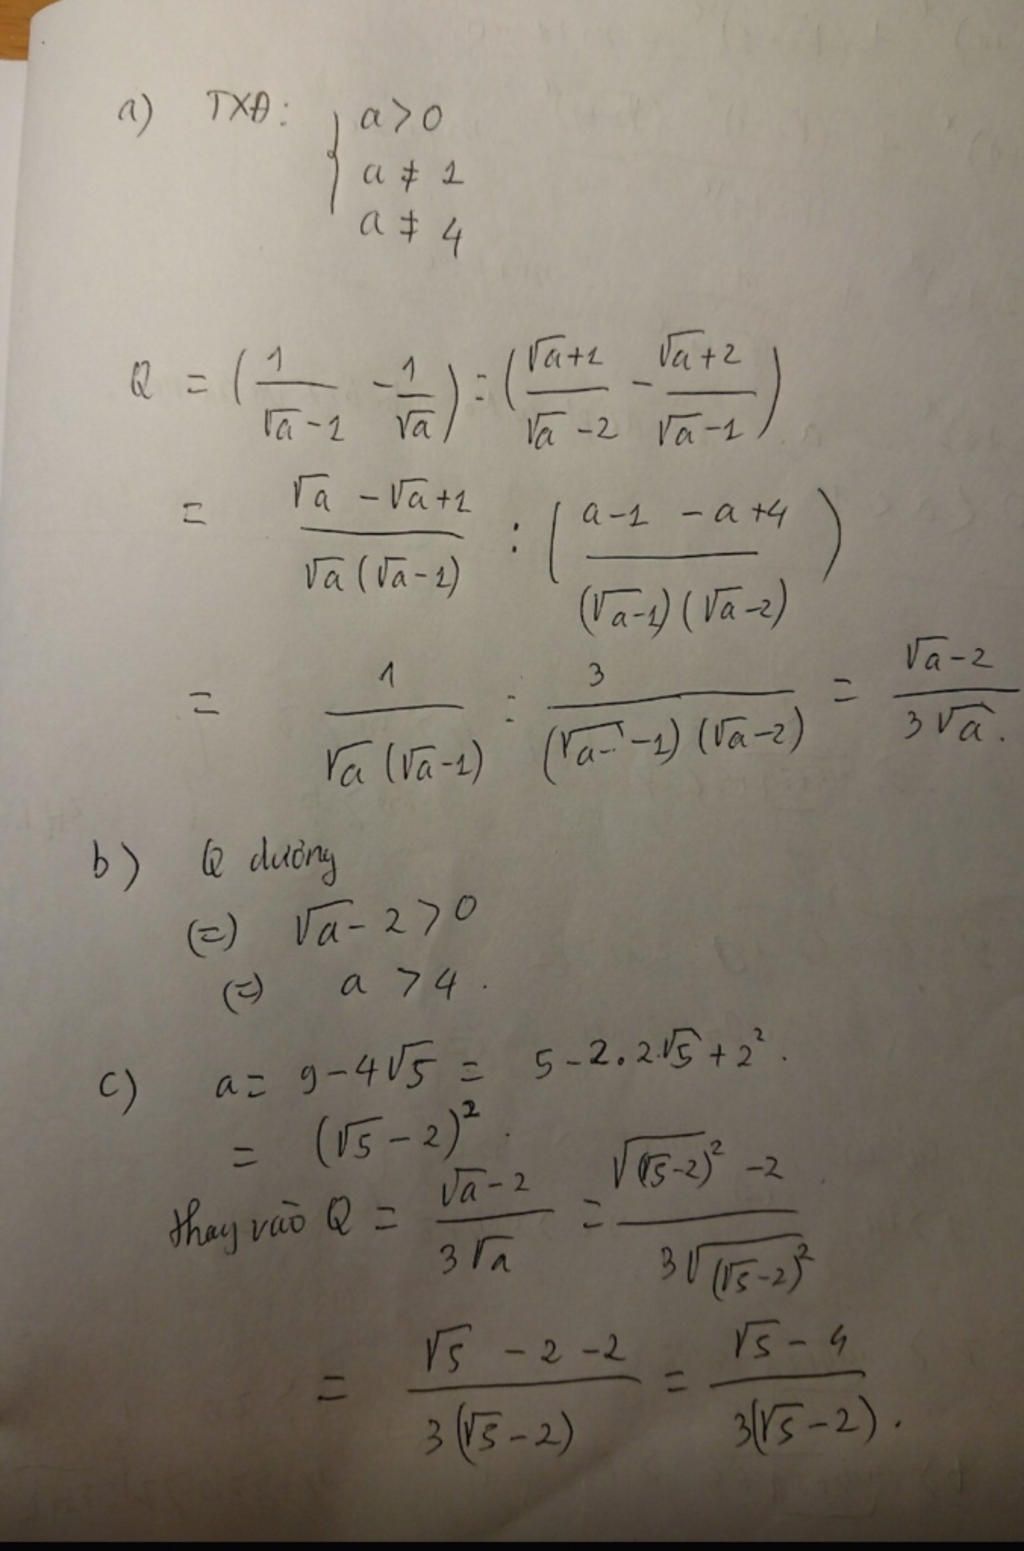 a) TXĐ: { a>0
a ≠ 1
a ≠ 4
Q = (1/(√a-1) - 1/√a) : ((√a+1)/(√a-2) - (√a+2)/(√a-1))
= (√a - √a+1)/(√a(√a-1)) : ((a-1 -a+4)/((√a-1)(√a-2)))
= 1/(√a(√a-1)) : 3/((√a-1)(√a-2)) = (√a-2)/(3√a).
b) Q dương
(=) √a - 2 > 0
(=) a > 4.
c) a = 9-4√5 = 5-2.2.√5+2².
= (√5-2)².
thay vào Q = (√a-2)/(3√a) = (√((√5-2)²) -2)/(3√((√5-2)²))
= (√5 -2 -2)/(3(√5-2)) = (√5-4)/(3(√5-2)).